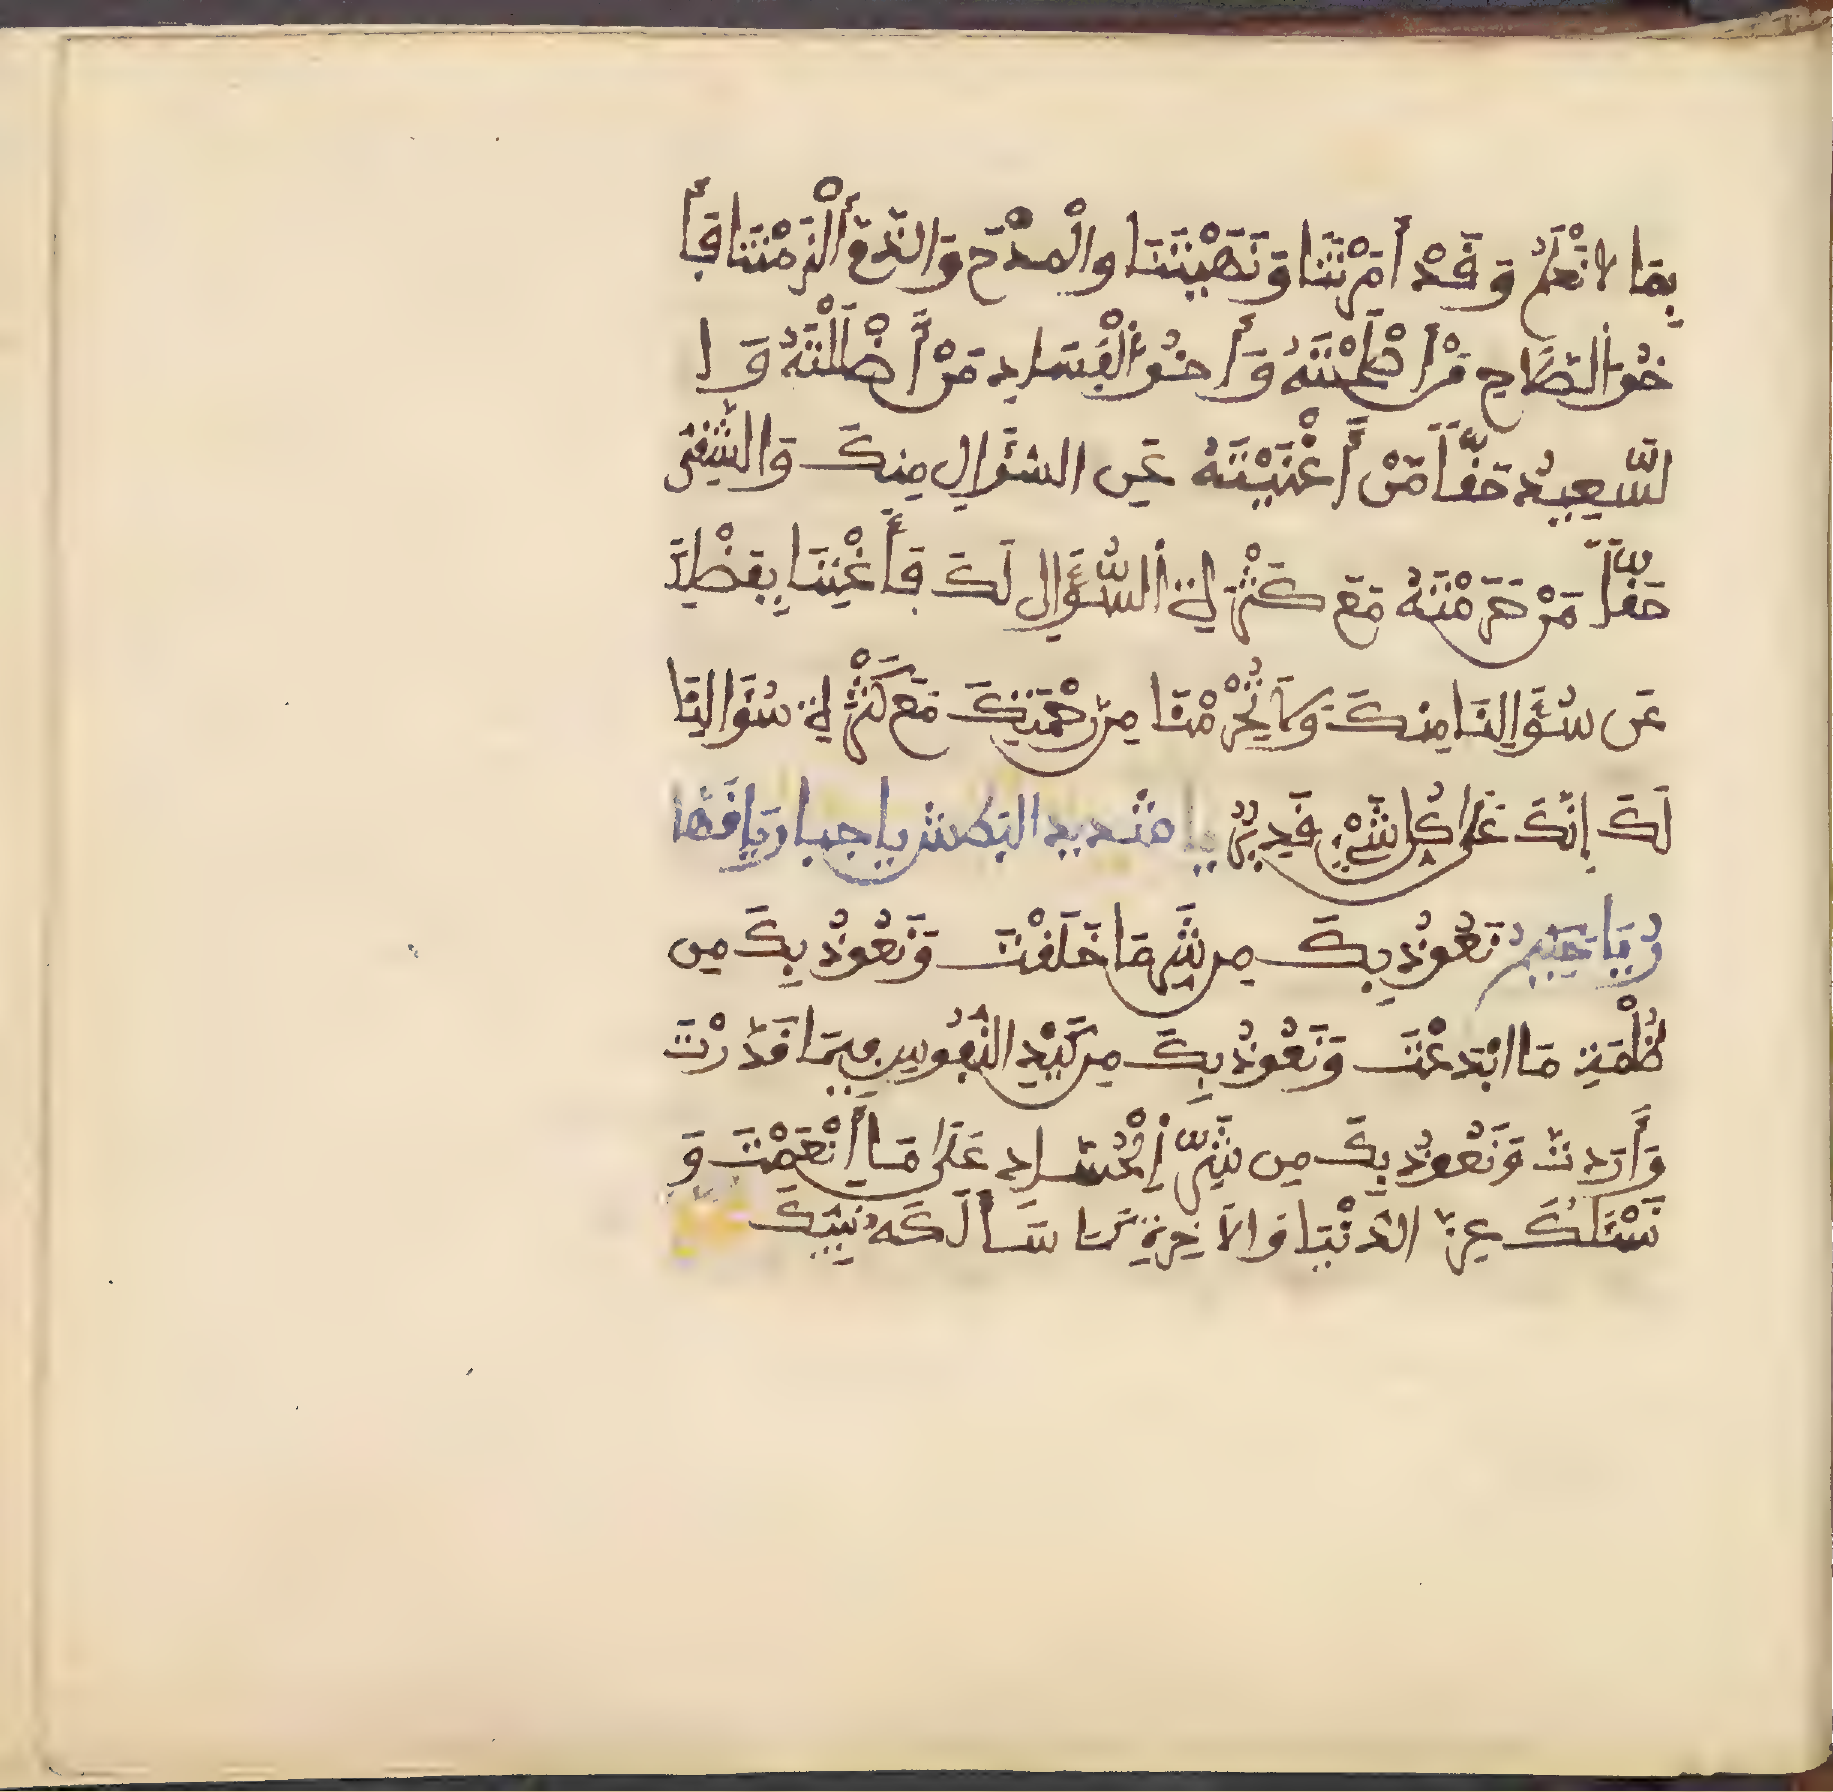 بِمَا لَا نَعْلَمُ وَقَدْ أَمَرْتَنَا وَنَهَيْتَنَا وَالْمَدْحَ وَالذَّمَّ أَلْزَمْتَنَا فَأَ
خُو الصَّلَاحِ مَنْ أَصْلَحْتَهُ وَأَخُو الْفَسَادِ مَنْ أَضْلَلْتَهُ وَا
لسَّعِيدُ حَقًّا مَنْ أَغْنَيْتَهُ عَنِ السُّؤَالِ مِنكَ وَالشَّقِيُّ
حَقًّا مَنْ حَرَمْتَهُ مَعَ كَثْرَةِ السُّؤَالِ لَكَ فَأَغْنِنَا بِفَضْلِكَ
عَن سُؤَالِنَا مِنكَ وَلَا تَحْرِمْنَا مِن رَّحْمَتِكَ مَعَ كَثْرَةِ سُؤَالِنَا
لَكَ إِنَّكَ عَلَى كُلِّ شَيْءٍ قَدِيرٌ يا شديد البطش يا جبار يَا قَهَّا
رُ يَا حَكِيمُ نَعُوذُ بِكَ مِن شَرِّ مَا خَلَقْتَ وَنَعُوذُ بِكَ مِن
ظُلْمَةِ مَا ابْتَدَعْتَ وَنَعُوذُ بِكَ مِن كَيْدِ النُّفُوسِ فِيمَا قَدَّرْتَ
وَأَرَدتَّ وَنَعُوذُ بِكَ مِن شَرِّ الْحُسَّادِ عَلَى مَا أَنْعَمْتَ وَ
نَسْئَلُكَ عِزَّ الدُّنْيَا وَالْآخِرَةِ كَمَا سَأَلَكَهُ نَبِيُّكَ